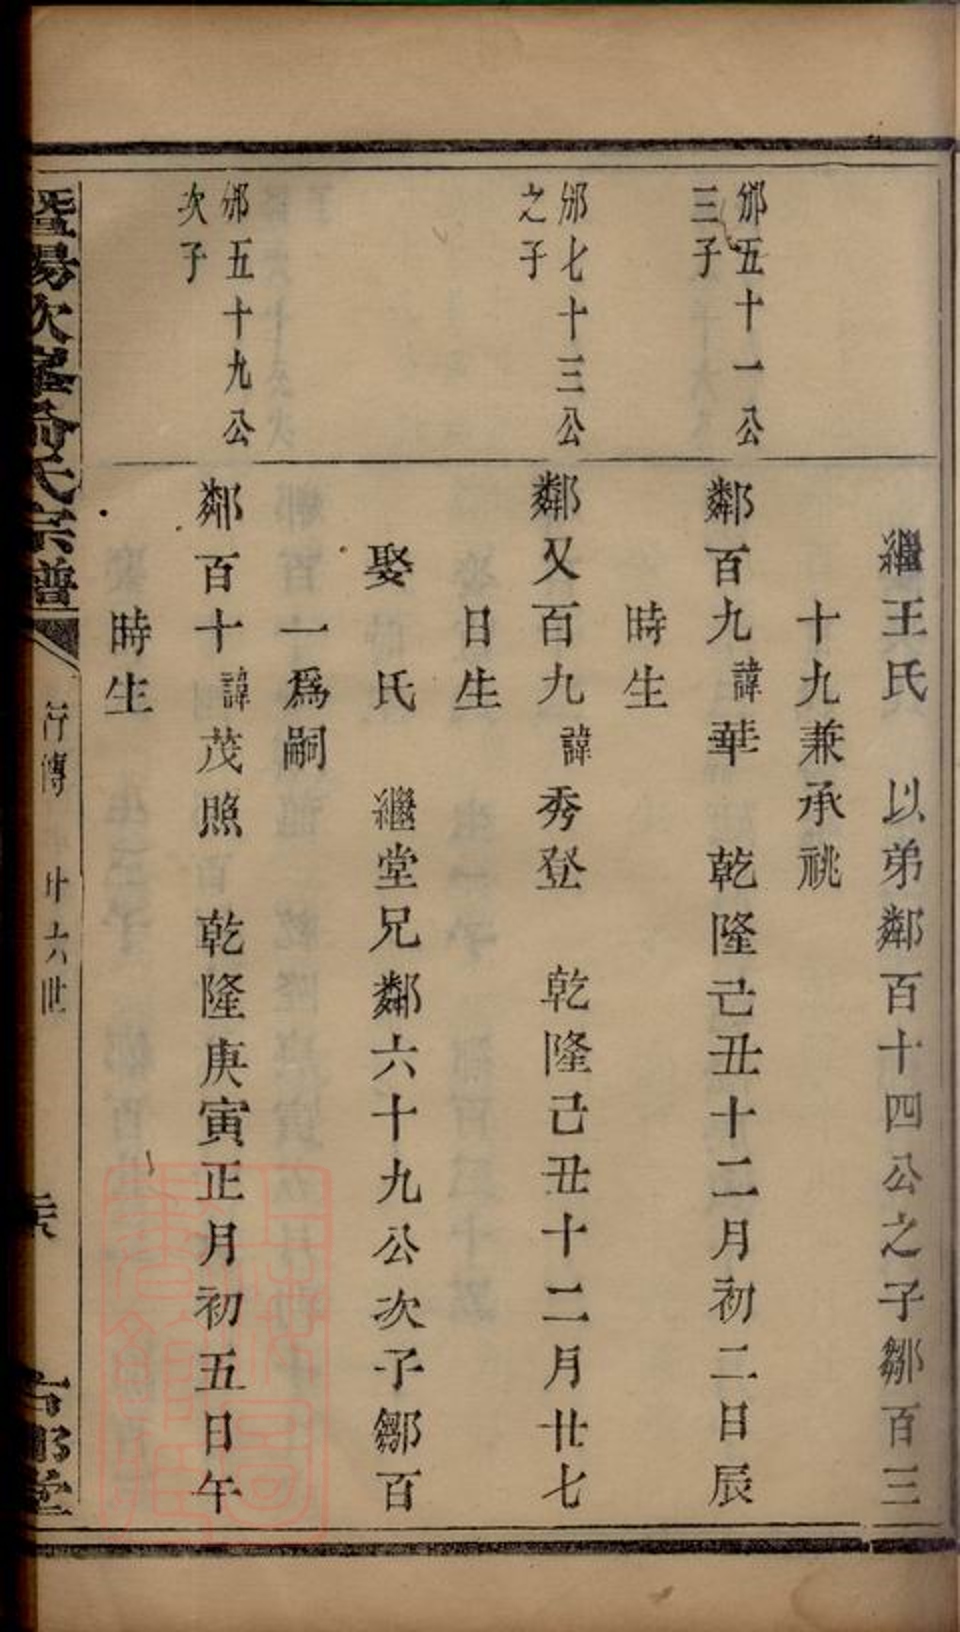 繼王氏　以弟鄰百十四公之子鄒百三
十九兼承祧
邠五十一公
三子
鄰百九諱華　乾隆己丑十二月初二日辰
時生
邠七十三公
之子
鄰又百九諱秀登　乾隆己丑十二月廿七
日生
娶　氏　繼堂兄鄰六十九公次子鄒百
一為嗣
邠五十九公
次子
鄰百十諱茂照　乾隆庚寅正月初五日午
時生
暨陽次峯俞氏宗譜
行傳
廿六世